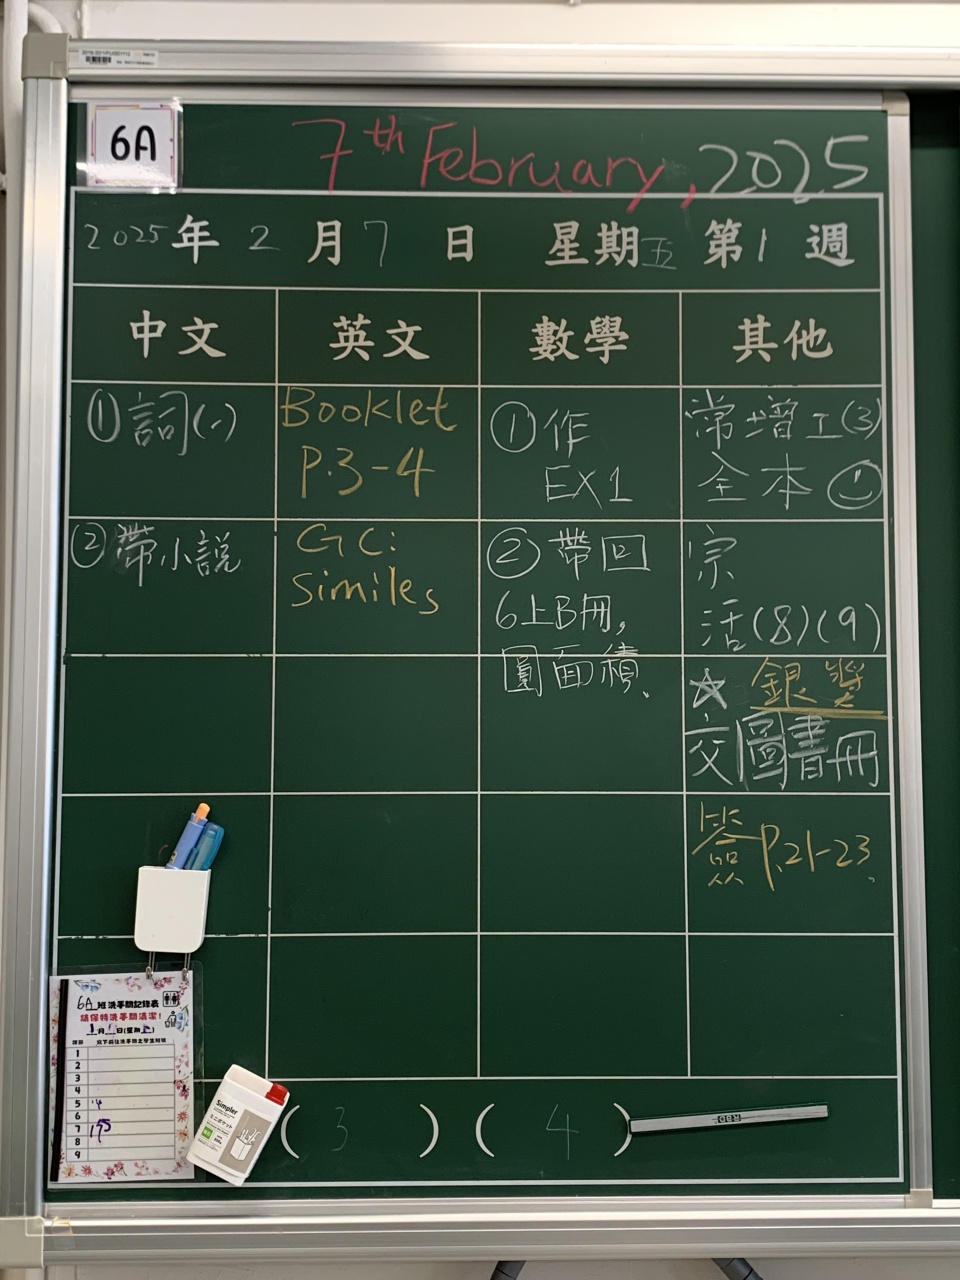 6A
7th February, 2025
2025年 2 月 7 日 星期五 第 1 週
中文 英文 數學 其他
① 詞(一)
② 帶小說
Booklet
P.3-4
GC:
Similes
① 作
EX1
② 帶回
6上B冊,
圓面積、
常增工(3)
全本
宗
活(8)(9)
☆ 銀獎
交圖書冊
簽 P.21-23
6A 班洗手間記錄表
請保持洗手間清潔!
月 日(星期 )
1
2
3
4
5
6
7
8
9
Simpler
( 3 ) ( 4 )